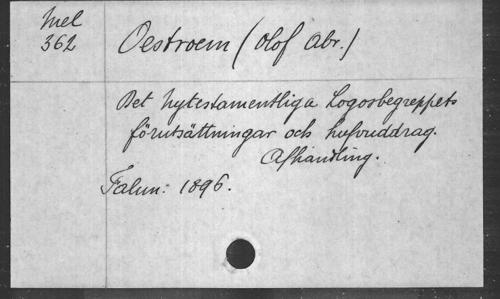 Mel
362
Oestroem (Olof Abr.)
Det nytestamentliga Logosbegreppets
förutsättningar och hufvuddrag.
Afhandling.
Falun: 1896.